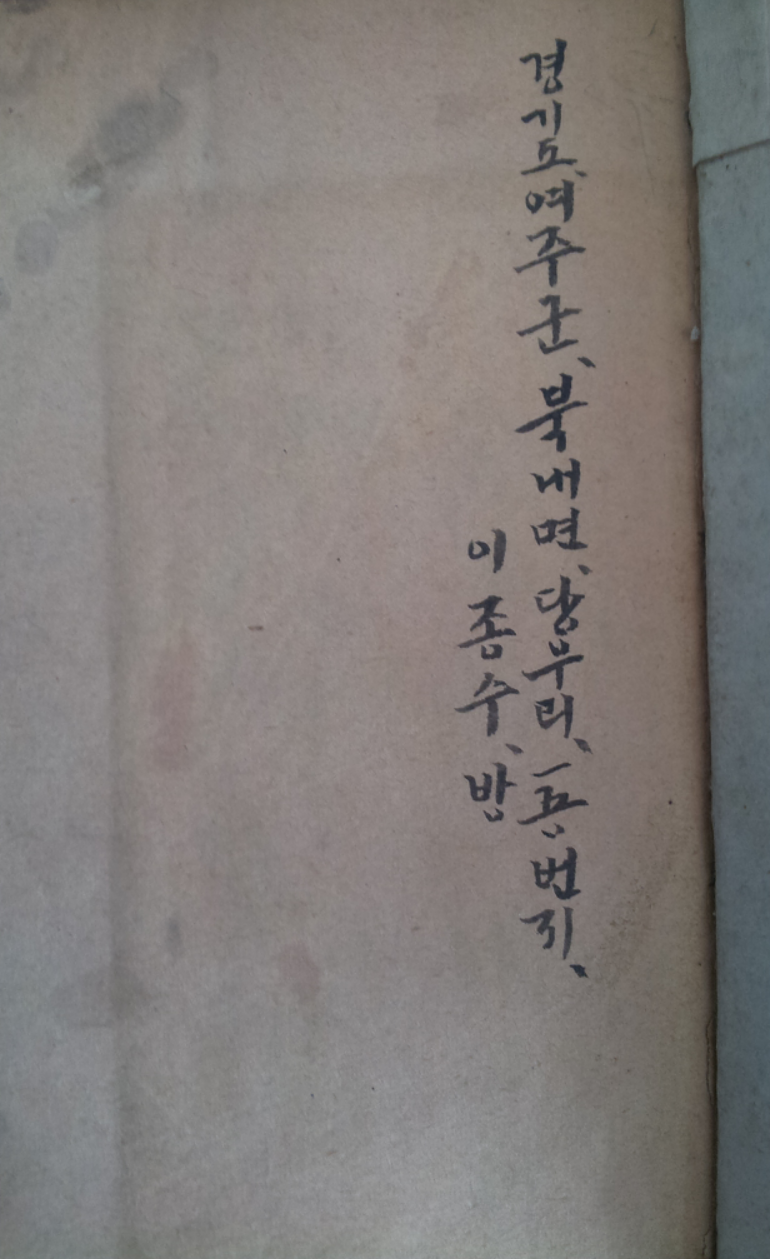 경기도、여주군、북내면、당우리、번지、
이종수、방